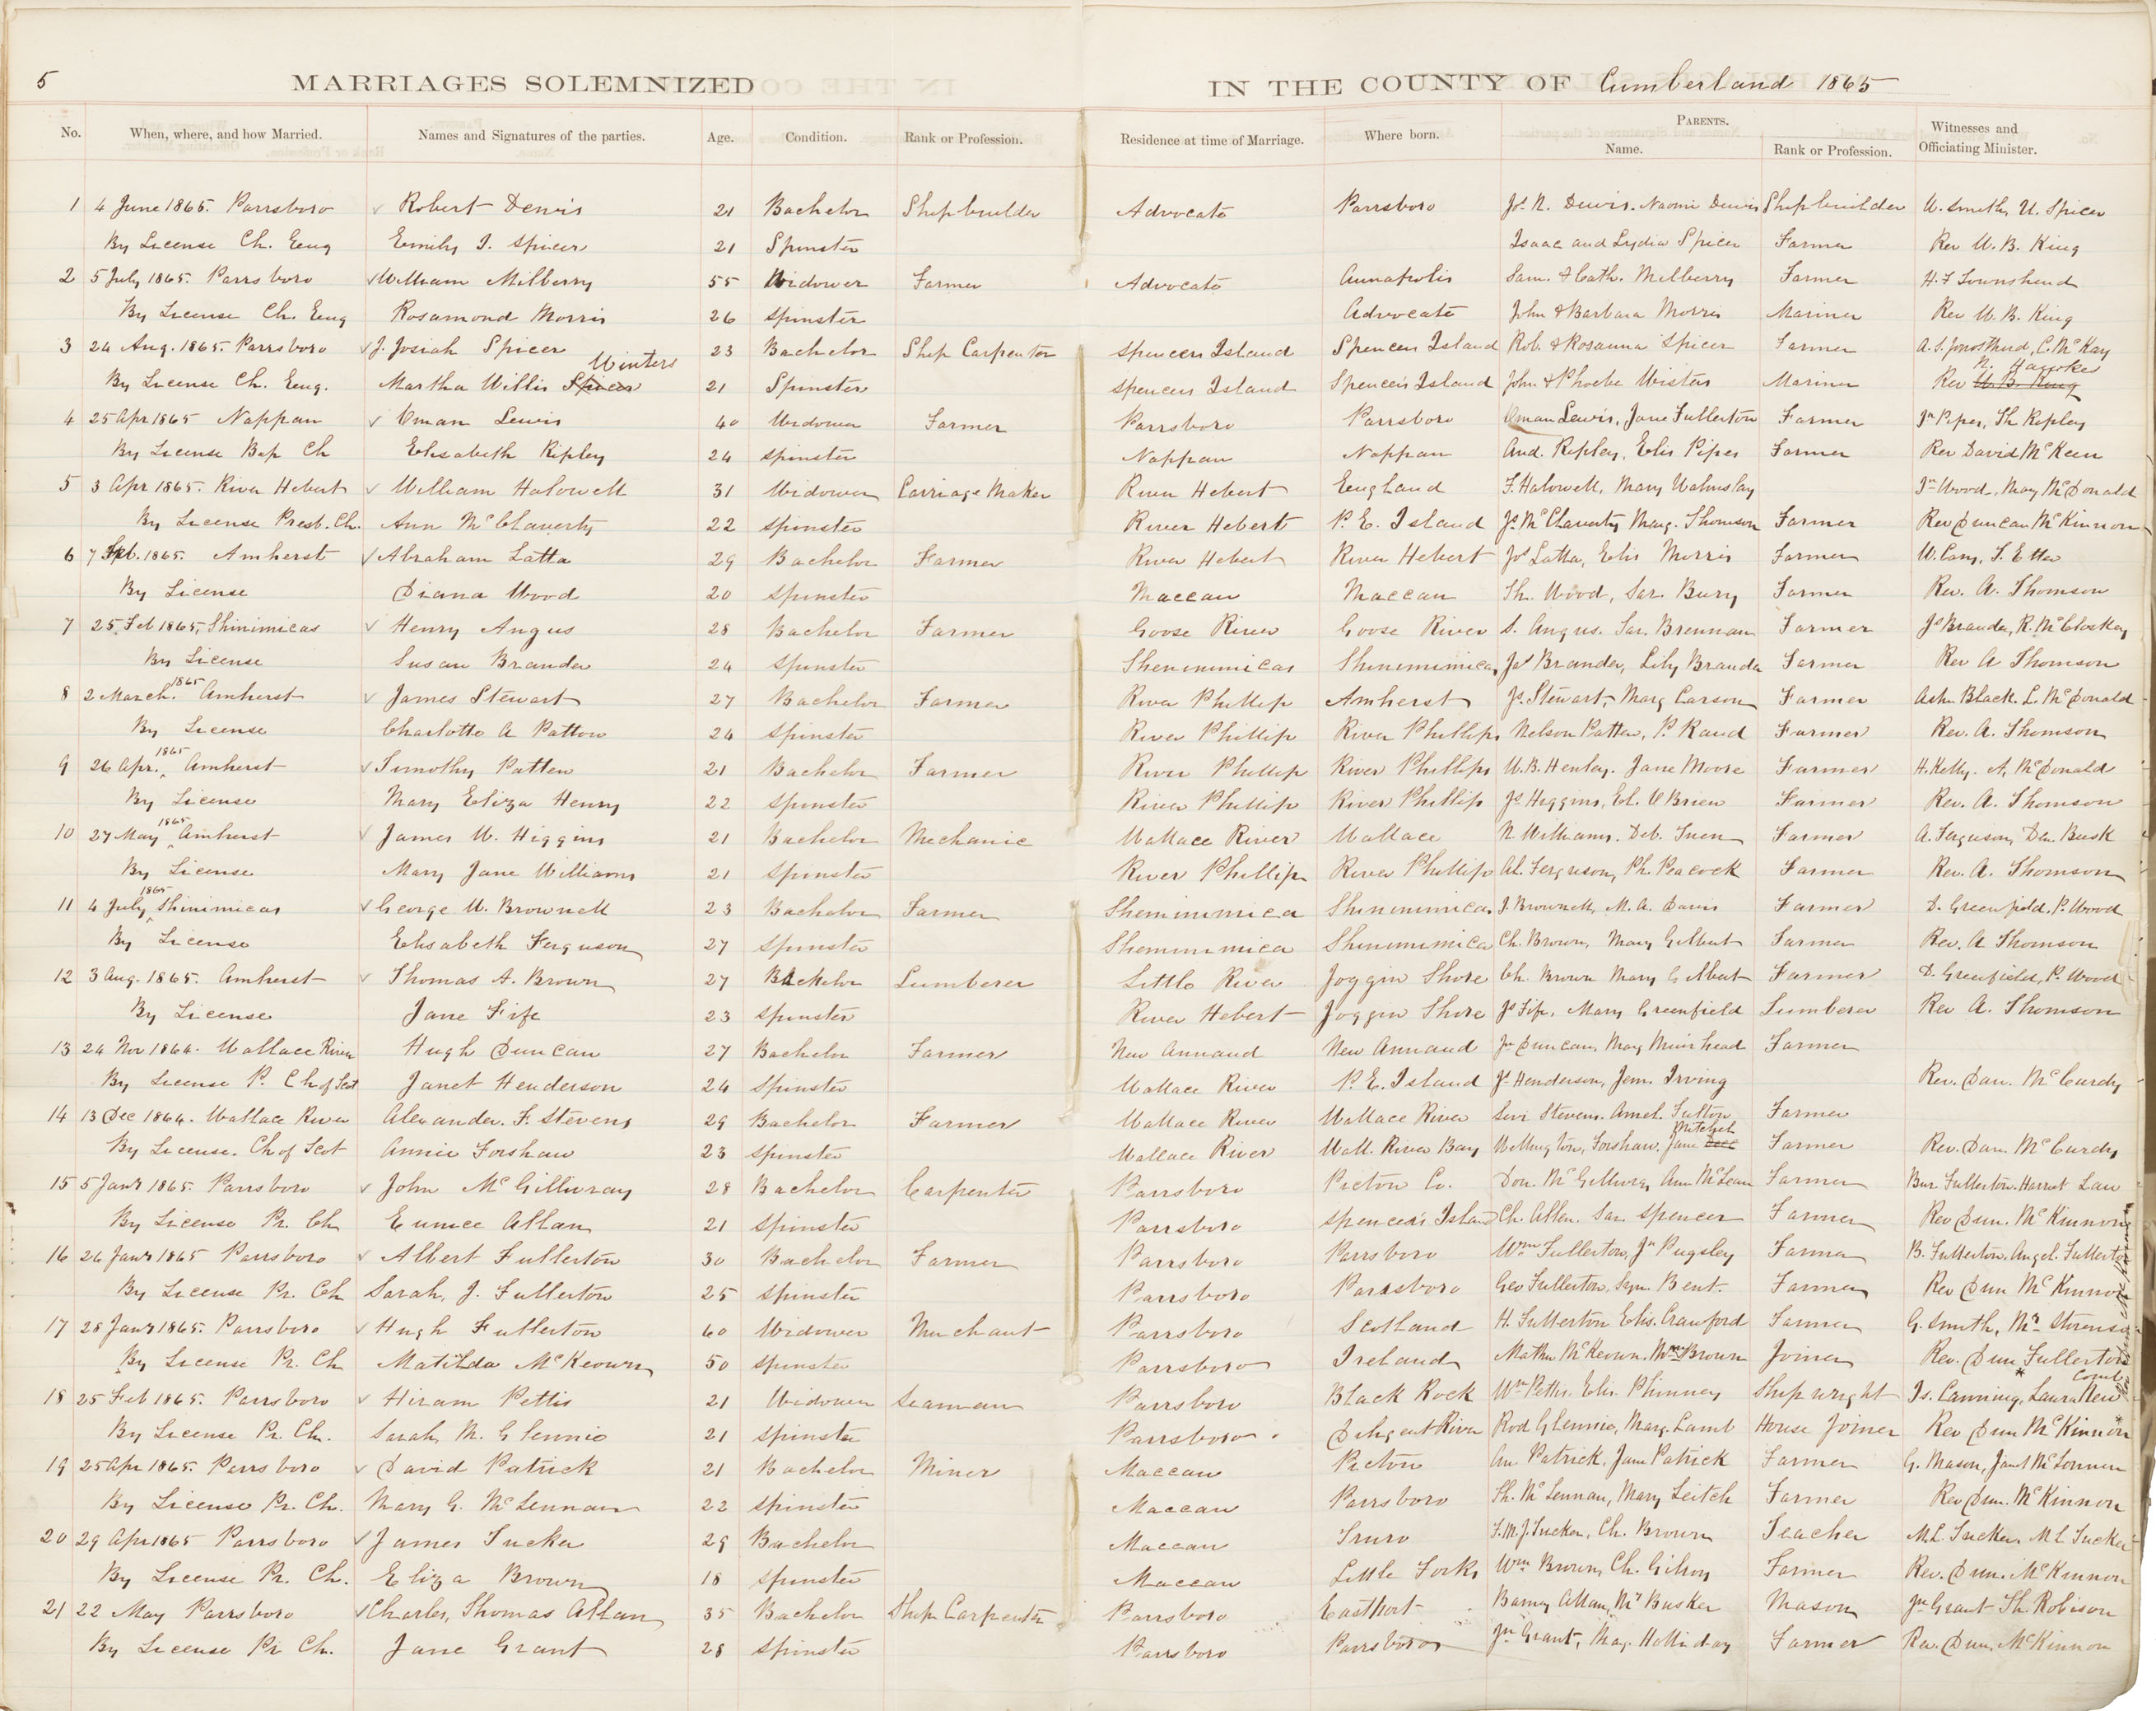 5
MARRIAGES SOLEMNIZED IN THE COUNTY OF Cumberland 1865
No. When, where, and how Married. Names and Signatures of the parties. Age. Condition. Rank or Profession. Residence at time of Marriage. Where born. PARENTS. Name. Rank or Profession. Witnesses and Officiating Minister.
1 4 June 1865. Parrsboro Robert Dewis 21 Bachelor Shipbuilder Advocate Parrsboro Js. N. Dewis. Naomi Dewis Shipbuilder W. Smith, U. Spicer
By License Ch. Eeng Emily J. Spicer 21 Spinster Isaac and Lydia Spicer Farmer Rev W. B. King
2 5 July 1865. Parrsboro William Milberry 55 Widower Farmer Advocate Annapolis Sam. & Cath. Milberry Farmer H. F Townshend
By License Ch. Eeng Rosamond Morris 26 Spinster Advocate John & Barbara Morris Mariner Rev W. B. King
3 24 Aug. 1865. Parrsboro J. Josiah Spicer 23 Bachelor Ship Carpenter Spencers Island Spencers Island Rob. & Rosanna Spicer Farmer C. McKay
By License Ch. Eeng. Martha Willis Spicer Winters 21 Spinster Spencers Island Spencer's Island John & Phoebe Wister Mariner Rev W. B. King R. Hawkes
4 25 Apr 1865 Nappan Oman Lewis 40 Widower Farmer Parrsboro Parrsboro Oman Lewis, Jane Fullerton Farmer Jn Piper, Th Ripley
By License Bap Ch Elisabeth Ripley 24 Spinster Nappan Nappan And. Ripley, Elis Pipes Farmer Rev David McKeen
5 3 Apr 1865. River Hebert William Halowell 31 Widower Carriage Maker River Hebert Eengland T. Halowell, Mary Walmslay Jn Wood, May McDonald
By License Presb. Ch. Ann McClaverty 22 Spinster River Hebert P. E. Island Js McClaverty Marg. Thomson Farmer Rev Duncan McKinnon
6 7 Feb. 1865. Amherst Abraham Latta 29 Bachelor Farmer River Hebert River Hebert Js Latta, Elis Morris Farmer T. Etter
By License Diana Wood 20 Spinster Maccan Maccan Th. Wood, Sar. Bury Farmer Rev. A. Thomson
7 25 Feb 1865, Shinimicas Henry Angus 28 Bachelor Farmer Goose River Goose River S. Angus. Sar. Brennan Farmer Js Branda, R. McCloskey
By License Susan Brander 24 Spinster Sheninimicas Shinimimicas Js Brander, Lily Branda Farmer Rev A Thomson
8 2 March. 1865 Amherst James Stewart 27 Bachelor Farmer River Phillip Amherst Js. Stewart, Marg Carson Farmer Ach. Black. L. McDonald
By License Charlotte A Patton 24 Spinster River Phillip River Phillips Nelson Patten, P. Rand Farmer Rev. A. Thomson
9 26 Apr. 1865 Amherst Timothy Patten 21 Bachelor Farmer River Phillip River Phillips W. B. Henley. Jane Moore Farmer H. Kelly. A. McDonald
By License Mary Eliza Henry 22 Spinster River Phillip River Phillip Js Higgins, El. O'Brien Farmer Rev. A. Thomson
10 27 May 1865 Amherst James W. Higgins 21 Bachelor Mechanic Wallace River Wallace N. Williams. Deb. Tuen Farmer A. Ferguson, Dan. Busk
By License Mary Jane Williams 21 Spinster River Phillip River Phillip Al. Ferguson, Ph. Peacock Farmer Rev. A. Thomson
11 4 July 1865 Shinimicas George W. Brownell 23 Bachelor Farmer Shemimimica Shinimimicas J. Brownell, M. A. Davis Farmer D. Greenfield, P. Wood
By License Elisabeth Ferguson 27 Spinster Shemimimica Shinimimica Ch. Brown, Mary Gilbert Farmer Rev. A Thomson
12 3 Aug. 1865. Amherst Thomas A. Brown 27 Bachelor Lumberer Little River Joggin Shore Ch. Brown Mary Gilbert Farmer D. Greenfield, P. Wood
By License Jane Fife 23 Spinster River Hebert Joggin Shore Js Fife, Mary Greenfield Lumberer Rev A. Thomson
13 24 Nov 1864. Wallace River Hugh Duncan 27 Bachelor Farmer New Annand New Annand Jn Duncan, Mary Muirhead Farmer
By License P. Ch of Scot Janet Henderson 24 Spinster Wallace River P. E. Island Js Henderson, Jem. Irving Rev. Dan. McCurdy
14 13 Dec 1864. Wallace River Alexander. F. Stevens 29 Bachelor Farmer Wallace River Wallace River Levi Stevens. Amel. Fulton Farmer
By License. Ch of Scot Annie Forshaw 23 Spinster Wallace River Wall. River Bay Wellington, Forshaw. Jane Mitchel Farmer Rev. Dan. McCurdy
15 5 Jany 1865. Parrsboro John McGillivray 28 Bachelor Carpenter Parrsboro Picton Co. Don. McGillivray Ann McLean Farmer Bur. Fullerton. Harriet Law
By License Pr. Ch Eunice Allan 21 Spinster Parrsboro Spencer's Island Ch. Allen. Sar. Spencer Farmer Rev Dun. McKinnon
16 26 Jany 1865 Parrsboro Albert Fullerton 30 Bachelor Farmer Parrsboro Parrsboro Wm Fullerton, Jn Pugsley Farmer B. Fullerton, Angel. Fullerton
By License Pr. Ch Sarah, J. Fullerton 25 Spinster Parrsboro Parrsboro Geo Fullerton, Sym. Bent. Farmer Rev Dun McKinnon
17 28 Jany 1865. Parrsboro Hugh Fullerton 60 Widower Merchant Parrsboro Scotland H. Fullerton Elis. Crawford Farmer G. Smith,
By License Pr. Ch Matilda McKeown 50 Spinster Parrsboro Ireland Mathw McKeown. Brown Joiner Rev. Dun Fullerton
18 25 Feb 1865. Parrsboro Hiram Pettis 21 Widower Seaman Parrsboro Black Rock Wm Pettis. Elis. Phinney Ship wright Js. Canning, Laura Newcomb
By License Pr. Ch. Sarah, M. Glennie 21 Spinster Parrsboro Diligent River Rod Glennie, Marg. Lamb House Joiner Rev Dun McKinnon
19 25 Apr 1865. Parrsboro David Patrick 21 Bachelor Miner Maccan Picton An. Patrick. Jane Patrick Farmer G. Mason, Janet McLennen
By License Pr. Ch. Mary G. McLennan 22 Spinster Maccan Parrsboro Th. McLennan, Mary Leitch Farmer Rev Dun. McKinnon
20 29 Apr 1865 Parrsboro James Tucker 29 Bachelor Maccan Truro F. M. J. Tucker, Ch. Brown Teacher M. L. Tucker, M L Tucker
By License Pr. Ch. Eliza Brown 18 Spinster Maccan Little Forks Wm Brown, Ch. Gilroy Farmer Rev. Dun. McKinnon
21 22 May Parrsboro Charles, Thomas Allan 35 Bachelor Ship Carpenter Parrsboro Eastport Barney Allan, My Busker Mason Jn Grant Th Robison
By License Pr Ch. Jane Grant 28 Spinster Parrsboro Parrsboro Jn Grant, Mag. Holliday Farmer Rev. Dun, McKinnon